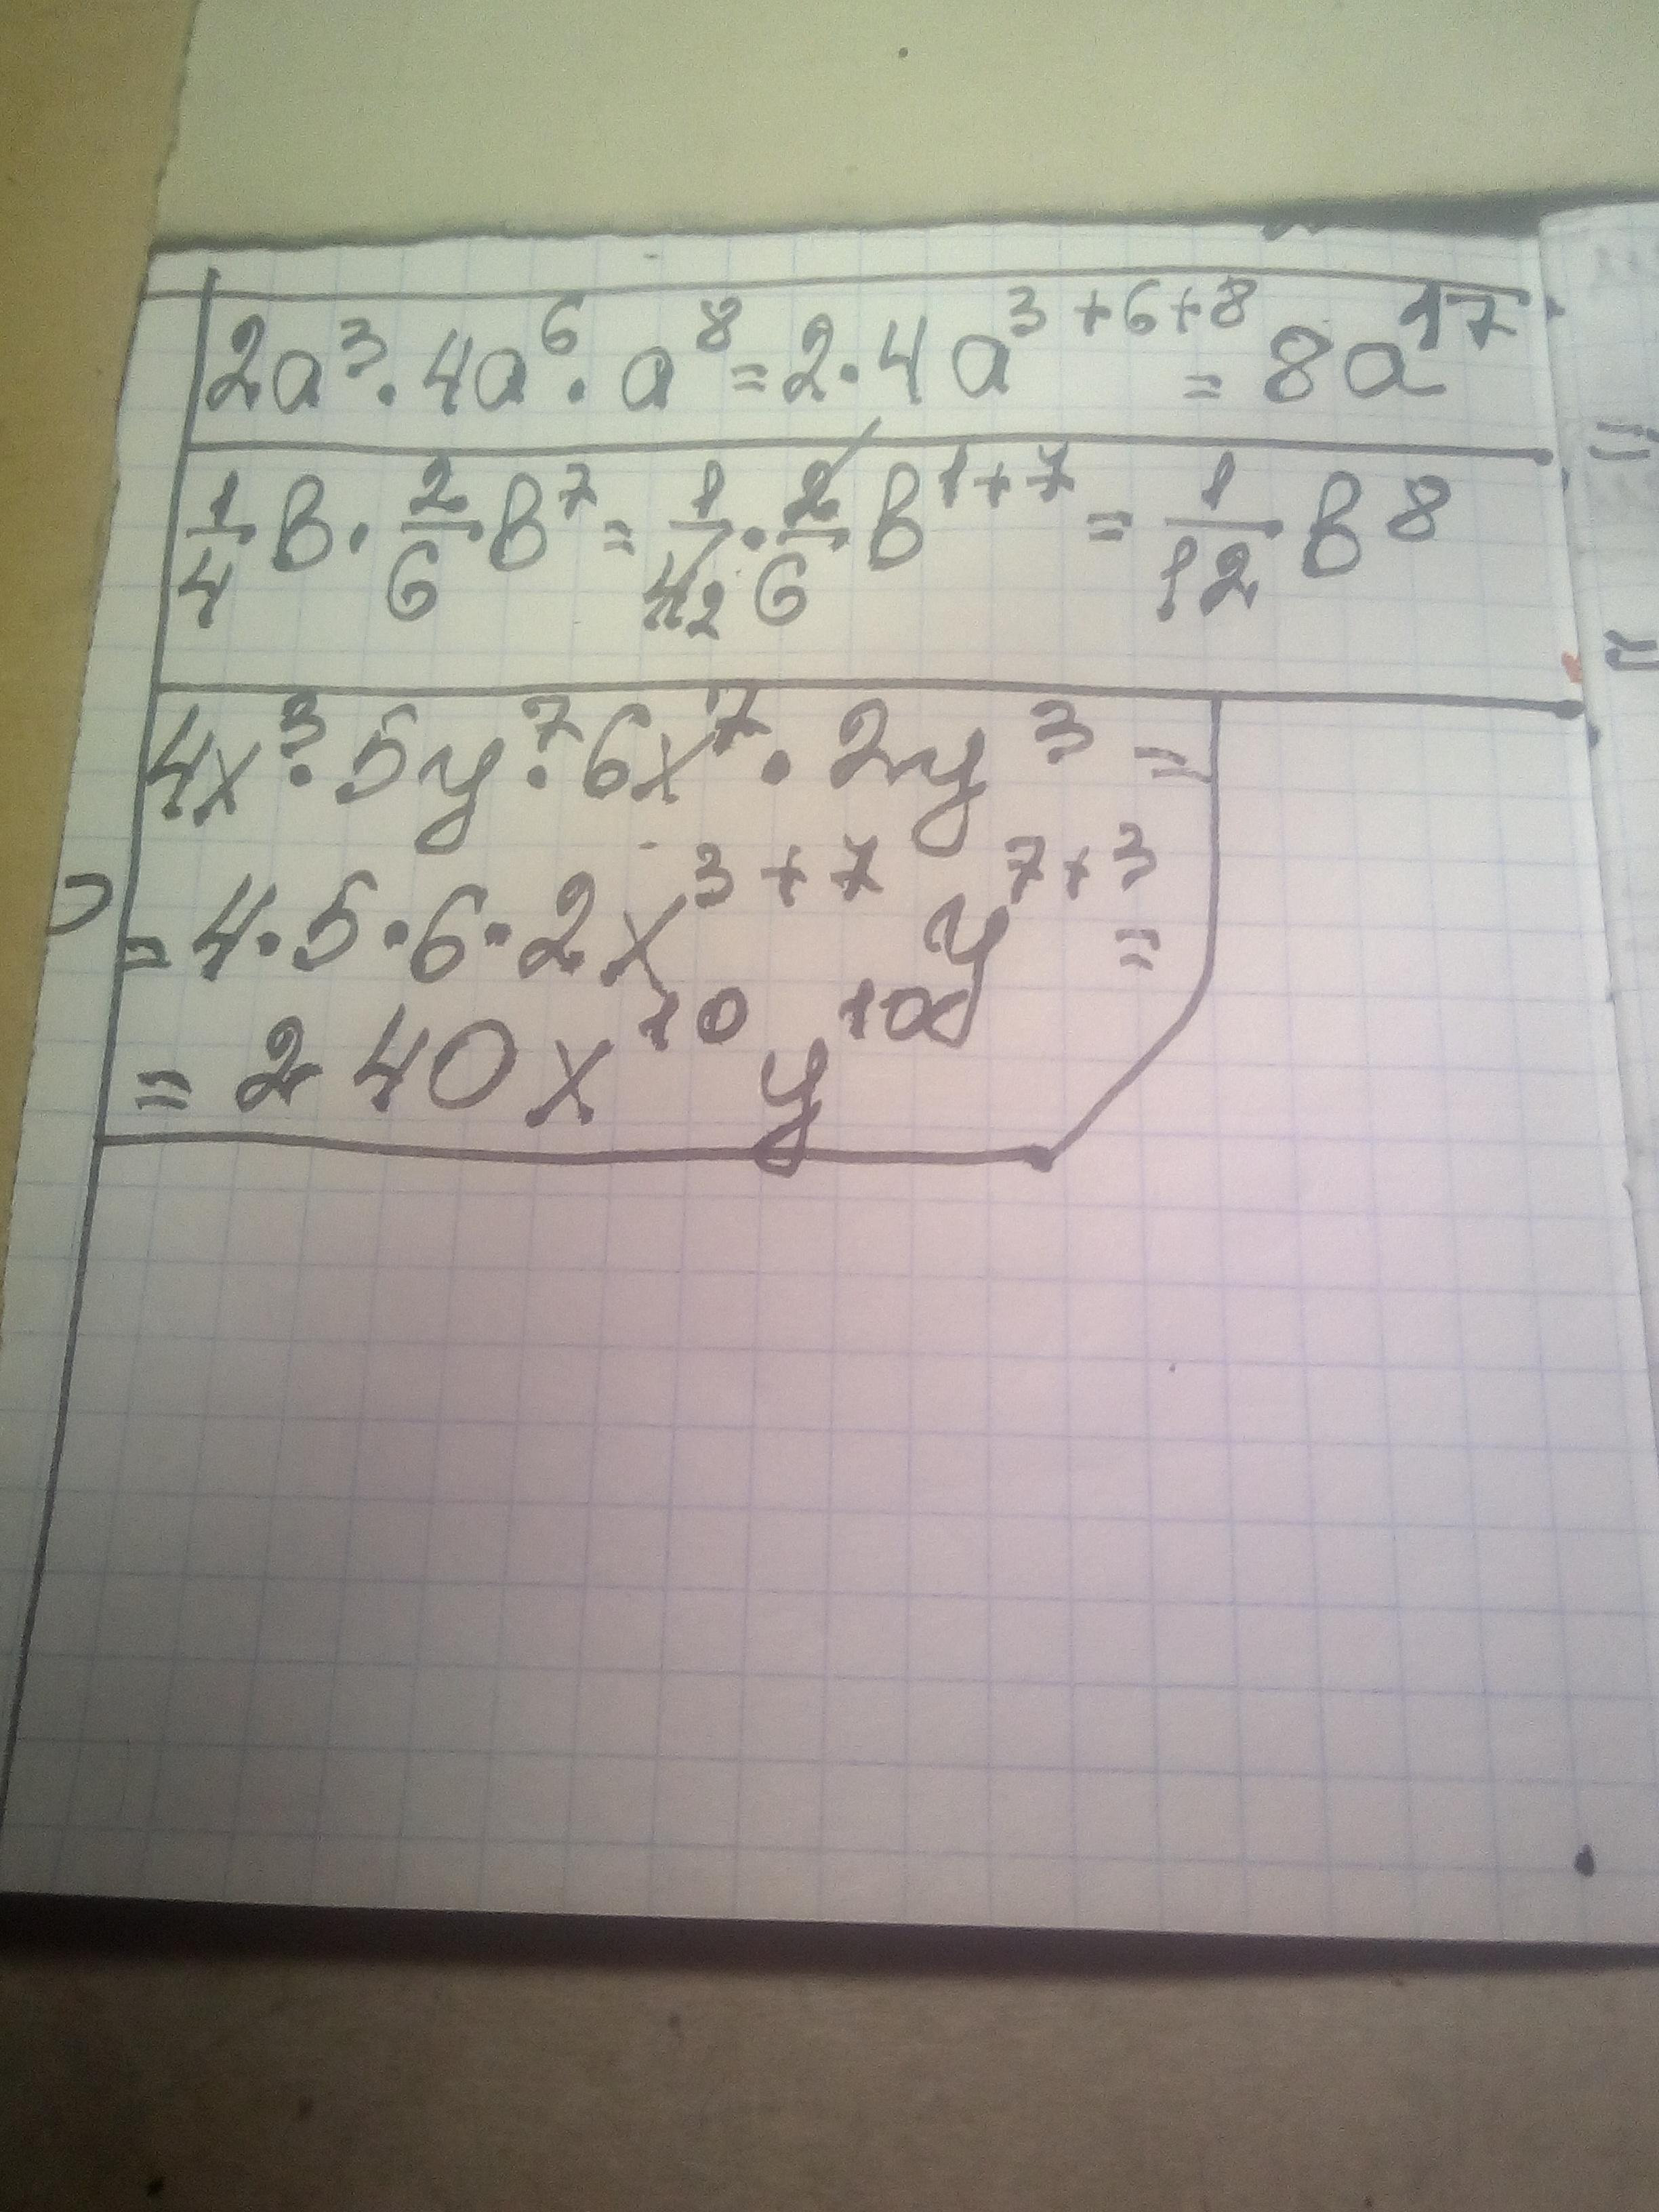 2a³ · 4a⁶ · a⁸ = 2 · 4 a³⁺⁶⁺⁸ = 8a¹⁷
1/4 в · 2/6 в⁷ = 1/4₂ · 2/6 в¹⁺⁷ = 1/12 в⁸
4x³ · 5y⁷ · 6x⁷ · 2y³ =
= 4 · 5 · 6 · 2x³⁺⁷ y⁷⁺³ =
= 240x¹⁰y¹⁰